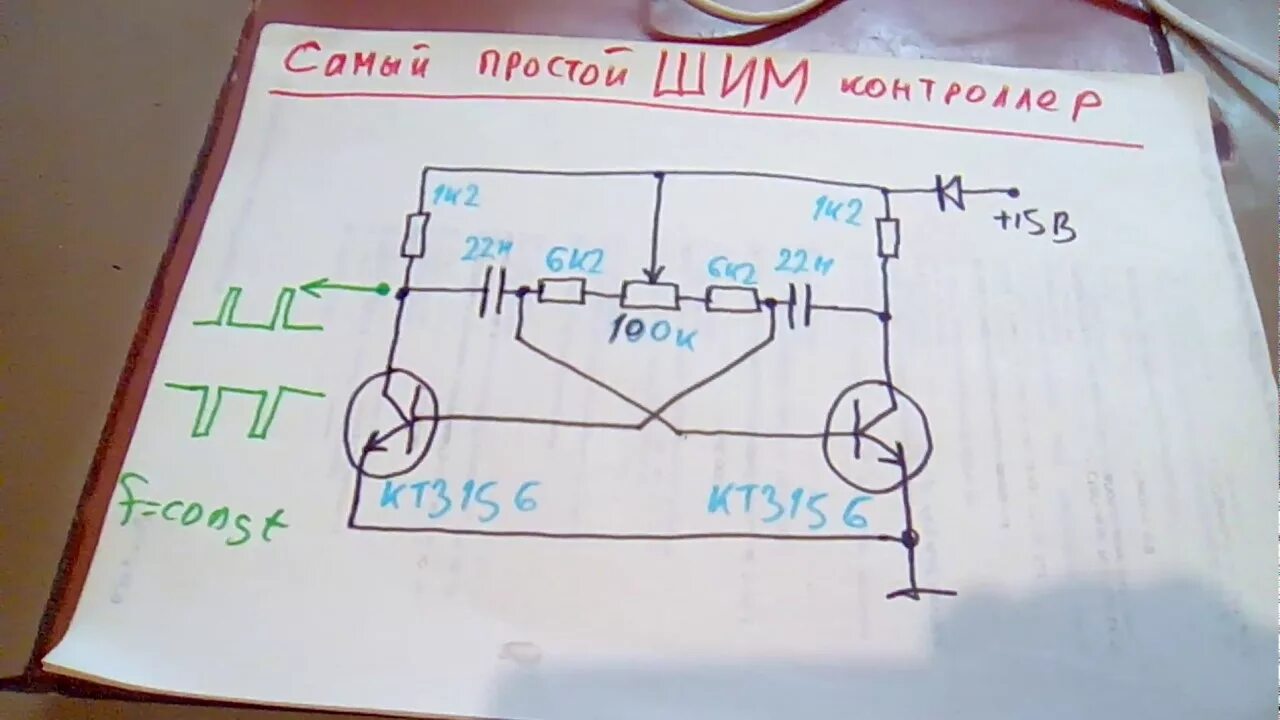 Самый простой ШИМ контроллер
1к2
1к2
+15В
22н
6к2
6к2
22н
100к
КТ315б
КТ315б
f=const